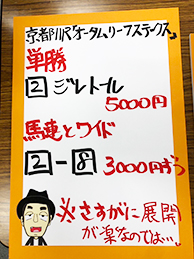 京都11R「オータムリーフステークス」
単勝
② ジレトール
5000円
馬連とワイド
②-⑧ 3000円ずつ
※さすがに展開
が楽なのでは…